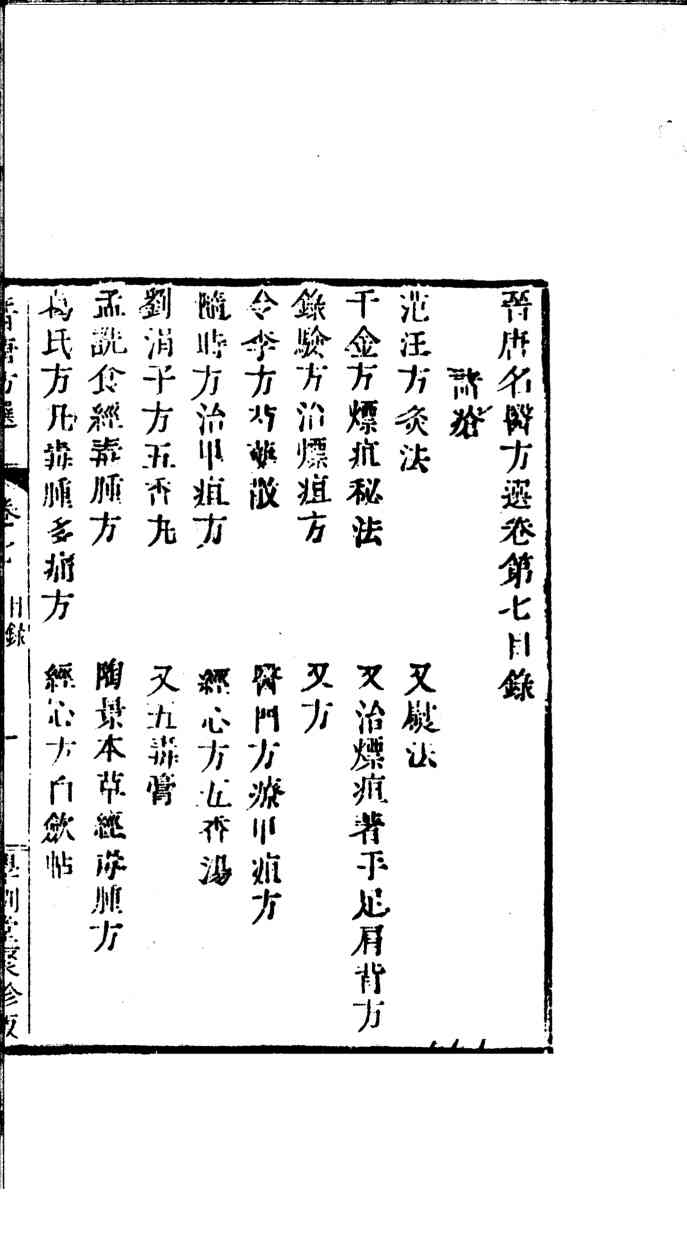 晉唐名醫方選卷第七目錄
諸瘡
范汪方灸法　又熨法
千金方熛疽秘法　又治熛疽著手足肩背方
錄驗方治熛疽方　又方
令李方芍藥散　醫門方療甲疽方
隨時方治甲疽方　經心方五香湯
劉涓子方五香丸　又五毒膏
孟詵食經毒腫方　陶景本草經毒腫方
葛氏方凡毒腫多痛方　經心方白歛帖
晉唐方選　卷七　目錄　一　聚珍版